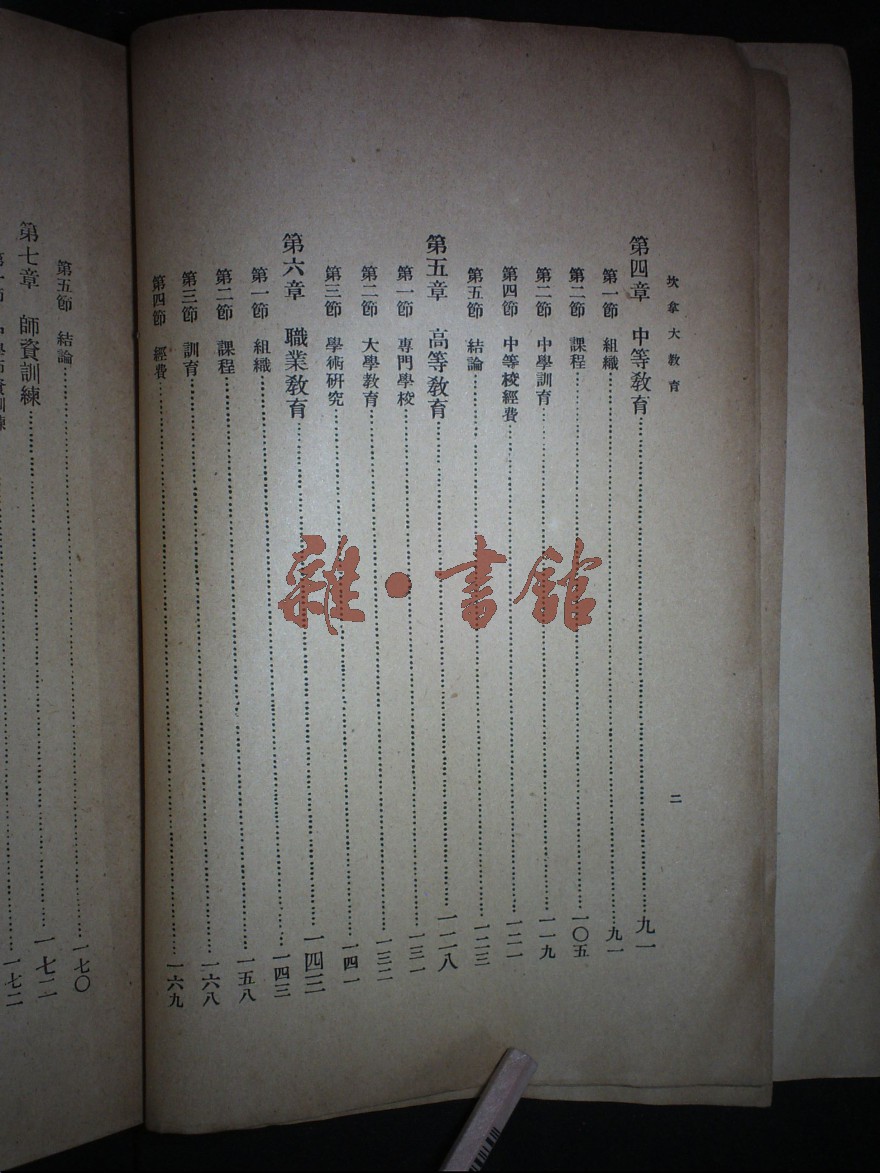 坎拿大教育
二
第四章 中等教育……九一
第一節 組織……九一
第二節 課程……一〇五
第二節 中學訓育……一一九
第四節 中等校經費……一二一
第五節 結論……一二三
第五章 高等教育……一二八
第一節 專門學校……一三一
第二節 大學教育……一三二
第三節 學術硏究……一四一
第六章 職業教育……一四三
第一節 組織……一四三
第二節 課程……一五八
第三節 訓育……一六八
第四節 經費……一六九
第五節 結論……一七〇
第七章 師資訓練……一七二
……一七二
雜·書館